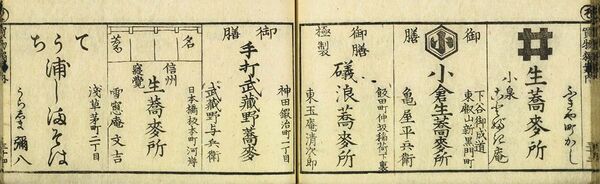 ふきや町かし
生蕎麦所
小泉
庵
下谷御成道
東叡山新黒門町
御膳
小
小倉生蕎麦所
亀屋平兵衛
飯田町仲坂稲荷下裏
御膳
極製
磯浪蕎麦所
東玉庵清次郎
神田鍛冶町二丁目
御膳
手打武蔵野蕎麦
武蔵野与兵衛
日本橋板本町河岸
名
信州
寝覚
生蕎麦所
雪窓庵文吉
浅草茅町二丁目
てうち
浦しまそは
うらしま 弥八